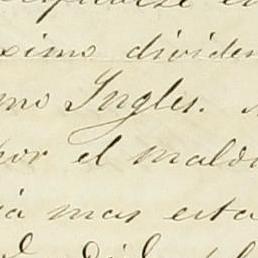 ximo dividen
mo Ingles.
por el maldi
ia mas esta